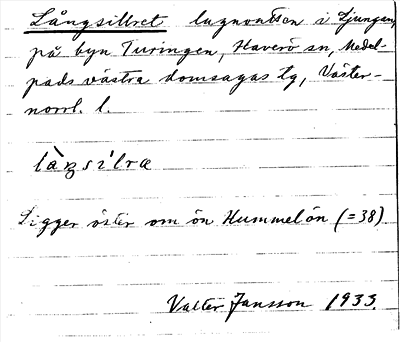 Långsilret lugnvatten i Ljungan,
på byn Turingen, Haverö sn, Medel-
pads västra domsagas tg, Väster-
norrl. l.
làŋsilrɑ
Ligger öster om ön Hummelön (=38)
Valter Jansson 1933.